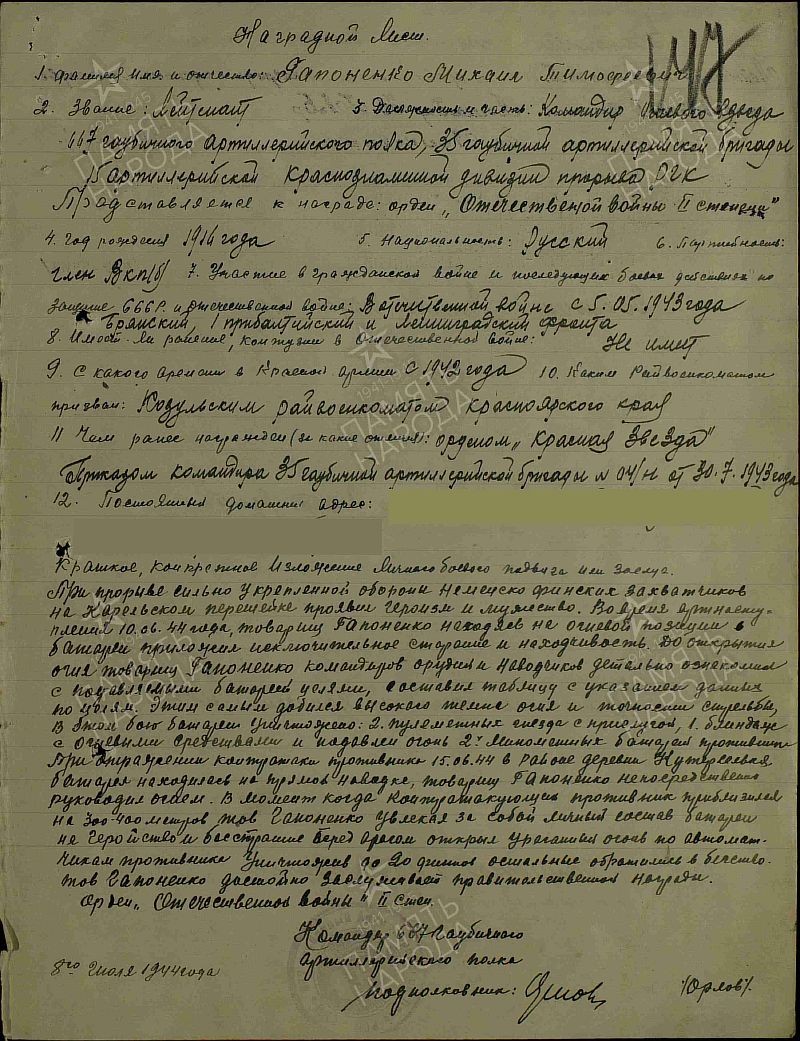 Наградной Лист.
147
1. Фамилия имя и отчество: Гапоненко Михаил Тимофеевич
2. Звание: Лейтенант 3. Должность и часть: Командир огневого взвода
667 гаубичного артиллерийского полка, 35 гаубичной артиллерийской бригады
15 артиллерийской Краснознаменной дивизии прорыва РГК
Представляется к награде: орден „Отечественной войны II степени"
4. год рождения 1916 года 5. Национальность: Русский 6. Партийность:
член ВКП(б) 7. Участие в гражданской войне и последующих боевых действиях по
защите СССР и отечественной войне: В отечественной войне с 5.05.1943 года
Брянский, Прибалтийский и Ленинградский фронта
8. Имеет ли ранение, контузии в отечественной войне: Не имеет
9. С какого времени в Красной армии с 1942 года 10. Каким Райвоенкоматом
призван: Козульским райвоенкоматом красноярского края
11 Чем ранее награжден (за какие отличия): орденом „Красная Звезда"
Приказом командира 35 гаубичной артиллерийской бригады № 04/н от 30.7.1943 года
12. Постоянный домашний адрес:
Краткое, конкретное изложение личного боевого подвига или заслуг.
При прорыве сильно укрепленной обороны немецко финских захватчиков
на Карельском перешейке проявил героизм и мужество. Во время артнасту-
пления 10.06.44 года, товарищ Гапоненко находясь на огневой позиции в
батареи приложил исключительное старание и находчивость. До открытия
огня товарищ Гапоненко командиров орудий и наводчиков детально ознакомил
с подавляемыми батареей целями, составил таблицу с указанием данных
по целям. Этим самым добился высокого темпа огня и точности стрельбы,
В этом бою батареей уничтожено: 2. пулеметных гнезда с прислугой, 1. блиндаж
с огневыми средствами и подавлен огонь 2х минометных батарей противника
При отражении контратаки противника 15.06.44 в районе деревни Кутерселькя
батарея находилась на прямой наводке, товарищ Гапоненко непосредственно
руководил огнем. В момент когда контратакующий противник приблизился
на 300-400 метров тов Гапоненко увлекая за собой личный состав батареи
на геройство и бесстрашие перед врагом открыл ураганный огонь по автомат-
чикам противника уничтожив до 20 финнов остальные обратились в бегство.
тов Гапоненко достойно заслуживает правительственной награды.
Орден „Отечественной войны" II степ.
Командир 667 Гаубичного
Артиллерийского полка
8го Июля 1944 года
подполковник: /Орлов/.